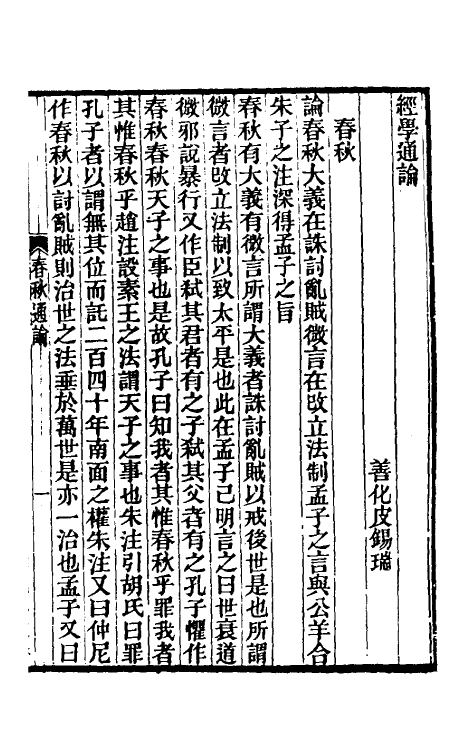 經學通論
善化皮錫瑞
春秋
論春秋大義在誅討亂賊微言在改立法制孟子之言與公羊合
朱子之注深得孟子之旨
春秋有大義有微言所謂大義者誅討亂賊以戒後世是也所謂
微言者改立法制以致太平是也此在孟子已明言之曰世衰道
微邪說暴行又作臣弒其君者有之子弒其父者有之孔子懼作
春秋春秋天子之事也是故孔子曰知我者其惟春秋乎罪我者
其惟春秋乎趙注設素王之法謂天子之事也朱注引胡氏曰罪
孔子者以謂無其位而託二百四十年南面之權朱注又曰仲尼
作春秋以討亂賊則治世之法垂於萬世是亦一治也孟子又曰
春秋通論
一